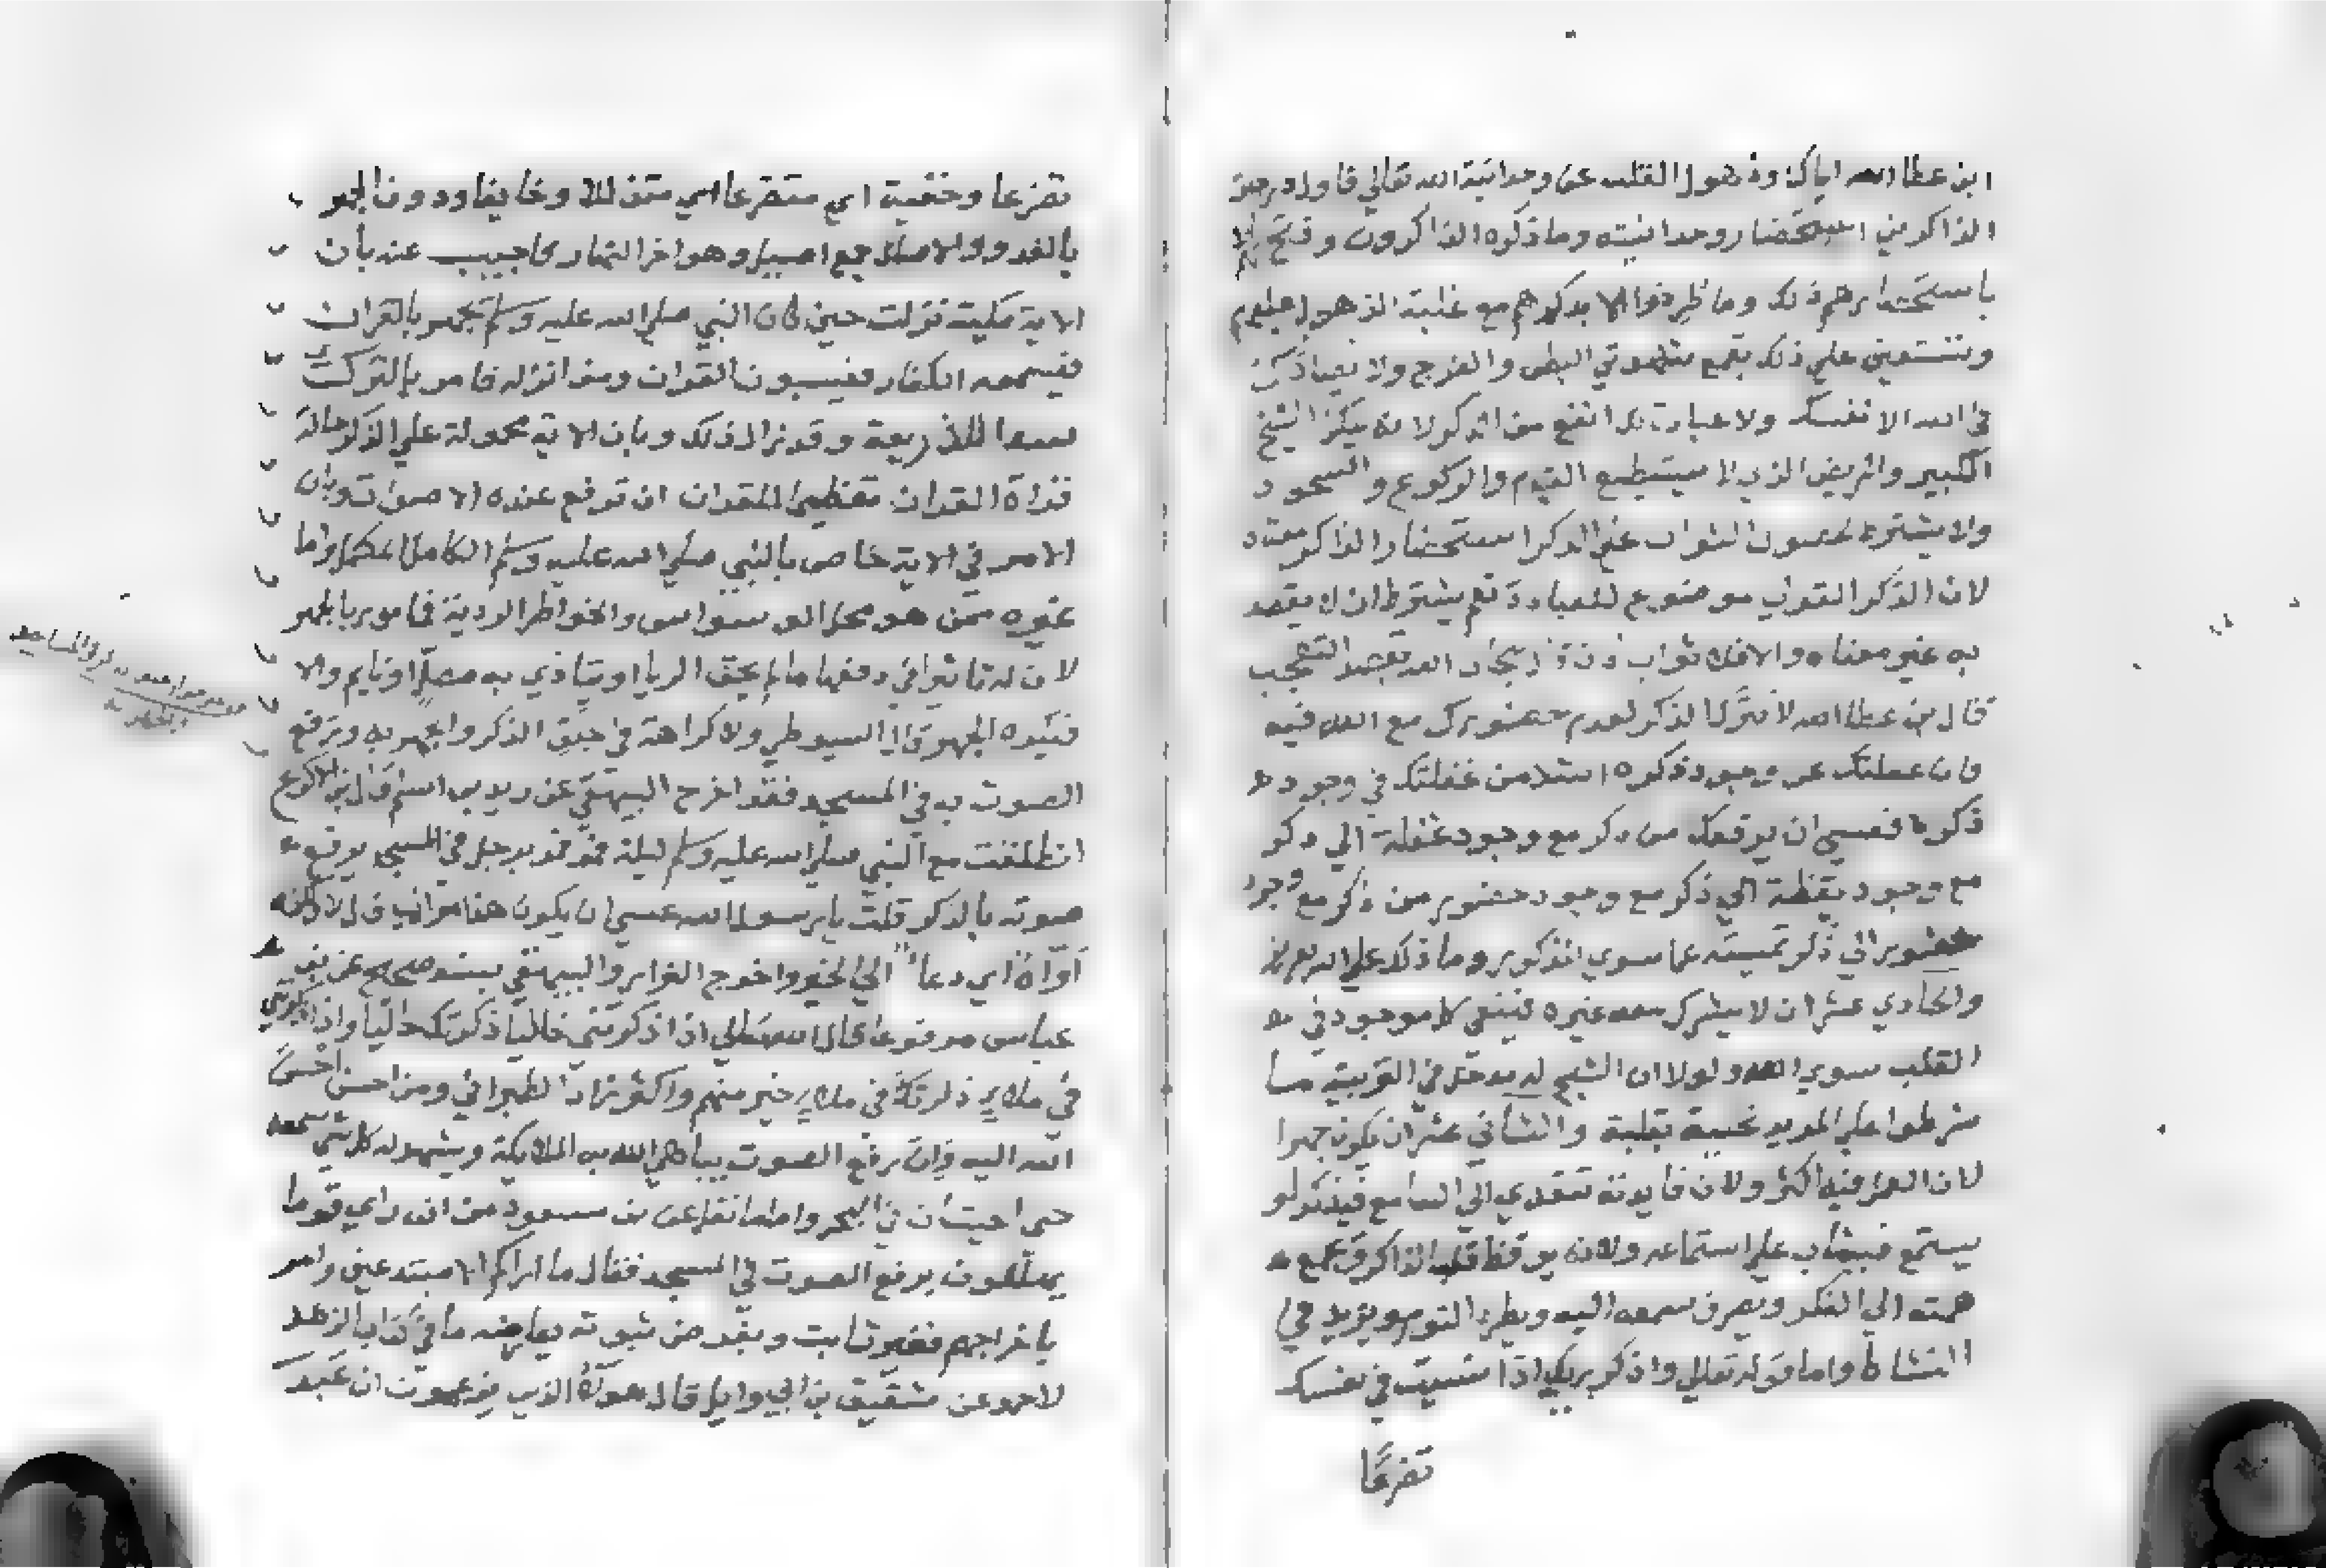 ابن عطا الله اياك وذهول القلب عن وحدانية الله تعالي فاول درجة
الذاكرين استحضار وحدانيته وما ذكره الذاكرون وفتح لهم
باستحضارهم ذلك وما طردوا الا بذكرهم مع غلبة الذهول عليهم
وتستعين علي ذلك بقمع شهوتي البطن والفرج ولا يعاديك
في الله الا نفسك ولا عبادت انفع من الذكر لانه يمكن الشيخ
الكبير والمريض الذي لا يستطيع القيام والركوع والسجود
ولا يشترط لحصول الثواب علي الذكر استحضار الذاكر معناه
لان الذكر القولي موضوع للعبادة نعم يشترط ان لا يقصد
به غير معناه والا فلا ثواب سبحان الله بقصد التعجب
قال بن عطا الله لا تترك الذكر لعدم حضورك مع الله فيه
فان غفلتك عن وجود ذكره اشد من غفلتك في وجود
ذكره فعسي ان يرفعك من ذكر مع وجود غفلة الي ذكر
مع وجود يقظة الي ذكر مع وجود حضور من ذكر مع وجود
حضور الي ذكر غيبته عما سوي المذكور وما ذلك علي الله بعزيز
والحادي عشر ان لا يشرك معه غيره فينفي كل موجود في
القلب سوي الله ولولا ان الشيخ له مدخل في التربية ما
شرطوا علي المريد بقلبه والثاني عشر ان يكون جهرا
لان العمل فيه اكثر ولان فايدته تتعدي الي السامع فيذكر او
يستمع فيثاب علي استماعه ولانه يوقظ قلب الذاكر ويجمع
همته الي الفكر ويصرف سمعه اليه ويطرد النوم ويزيد في
النشاط واما قوله تعالي واذكر ربك اذا نسيت في نفسك
تضرعا
تضرعا وخفية اي متضرعا اي متذللا وخايفا ودون الجهر
بالغدو والاصال جمع اصيل وهو اخر النهار فاجيب عنه بان
الاية مكية نزلت حين كان النبي صلي الله عليه وسلم يجهر بالقران
فيسمعه الكفار فيسبون القران ومن انزله فامر بالترك
سدا للذريعة وقد زال ذلك وبان الاية محمولة علي الذكر حالة
قراة القران تعظيما للقران ان ترفع عنده الاصوات وبان
الامر في الاية خاص بالنبي صلي الله عليه وسلم الكامل المكمل واما
غيره ممن هو محل الوسواس والخواطر الردية فمامور بالجهر
لان له تاثيرا في دفعها ما لم يخف الريا او يتاذي به مصل او نايم والا
فيكره الجهر قال السيوطي ولا كراهة في حلق الذكر والجهر به ورفع
الصوت به في المسجد فقد اخرج البيهقي عن زيد بن اسلم قال بن الاكوع
انطلقت مع النبي صلي الله عليه وسلم ليلة فمر برجل في المسجد يرفع
صوته بالذكر قلت يا رسول الله عسي ان يكون هذا مرائيا قال لا ولكنه
اواه اي دعا الي الخير واخرج البزار والبيهقي بسند صحيح عن بن
عباس مرفوعا قال الله تعالي اذا ذكرتني خاليا ذكرتك خاليا واذا ذكرتني
في ملاء ذكرتك في ملاء خير منهم واكثر زاد الطبراني ومن احسن احسن
الله اليه وان رفع الصوت يباهي الله به الملايكة ويشهد له كل شي سمعه
حتي الحيتان في البحر واما ما نقل عن بن مسعود من انه راي قوما
يهللون برفع الصوت في المسجد فقال ما اراكم الا مبتدعين وامر
باخراجهم فغير ثابت وبفرض ثبوته يعارضه ما في كتاب الزهد
لاحمد عن شقيق بن ابي وايل قال هولاء الذين يزعمون ان عبد